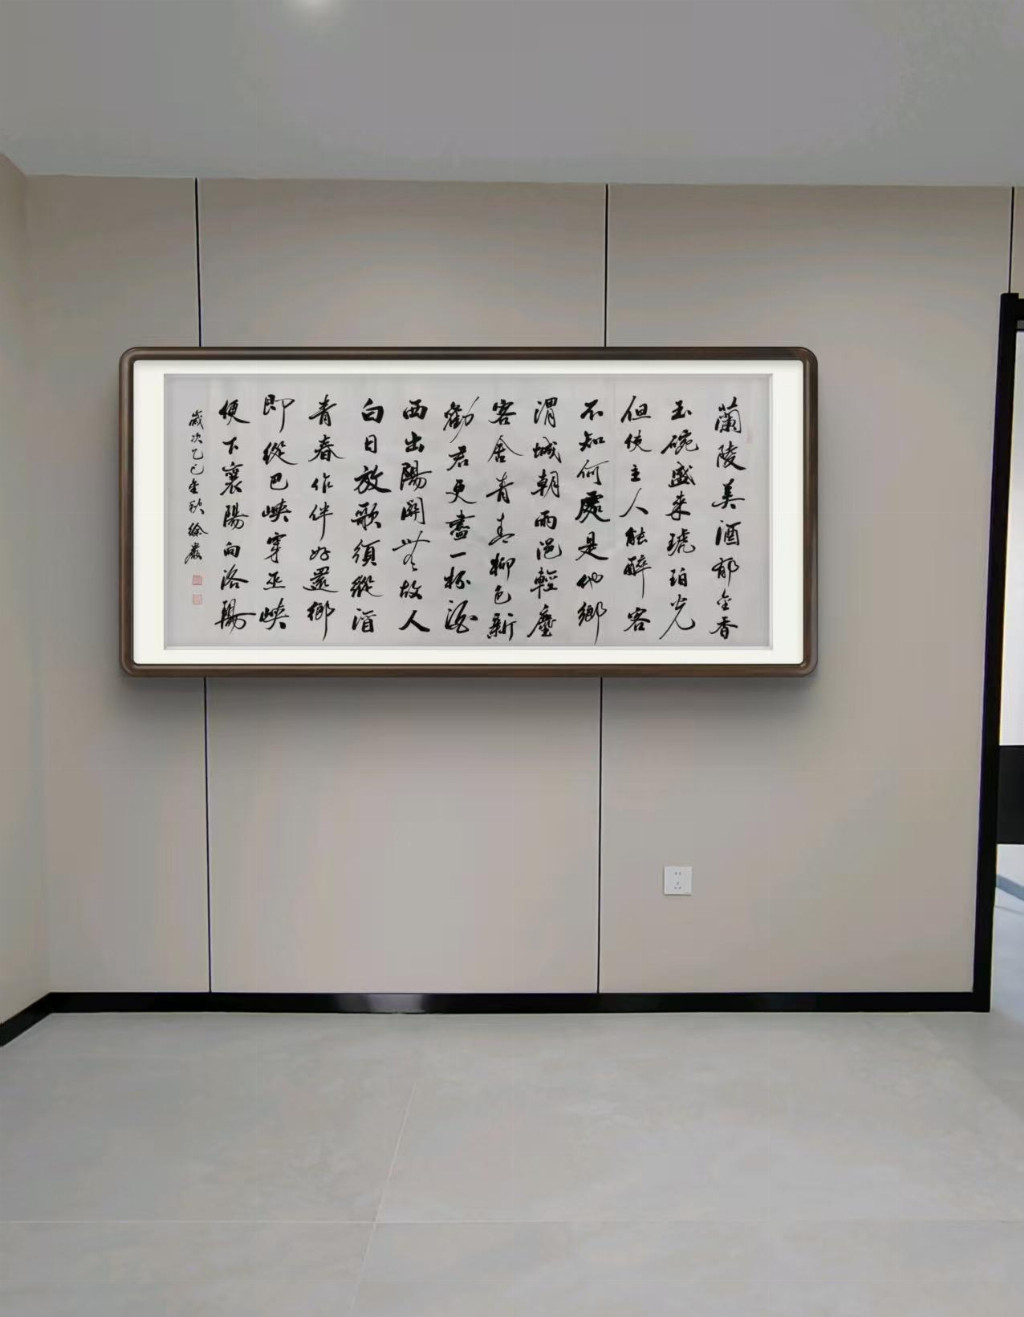 蘭陵美酒郁金香
玉碗盛来琥珀光
但使主人能醉客
不知何處是他鄉
渭城朝雨浥輕塵
客舍青青柳色新
勸君更盡一杯酒
西出陽關無故人
白日放歌須縱酒
青春作伴好還鄉
即從巴峽穿巫峽
便下襄陽向洛陽
歲次乙巳金秋徐